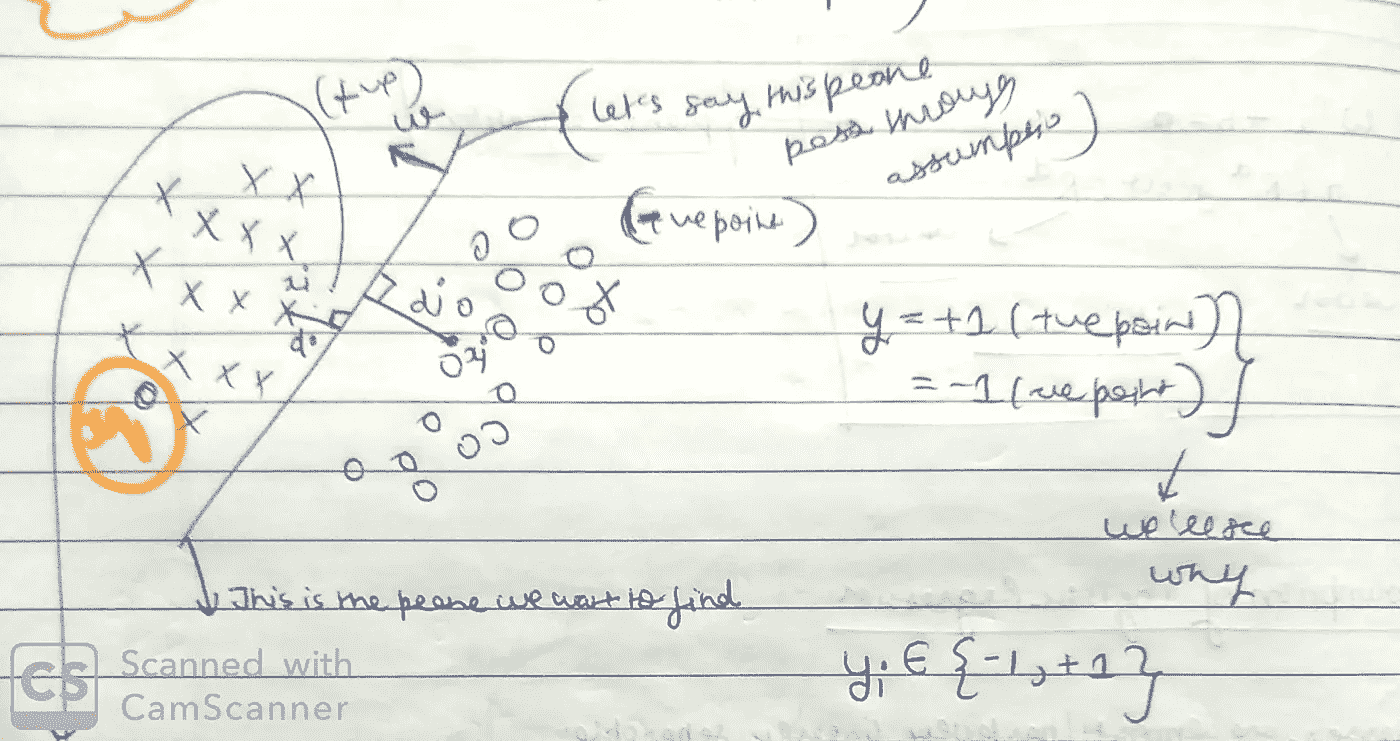 (+ve)
w
(let's say, this peane
pass through
assumptio)
(-ve point)
xi
di
dj
xj
y = +1 (+ve point)
= -1 (-ve point)
we'll see
why
This is the peane we want to find
yi ∈ {-1, +1}
CS
Scanned with
CamScanner